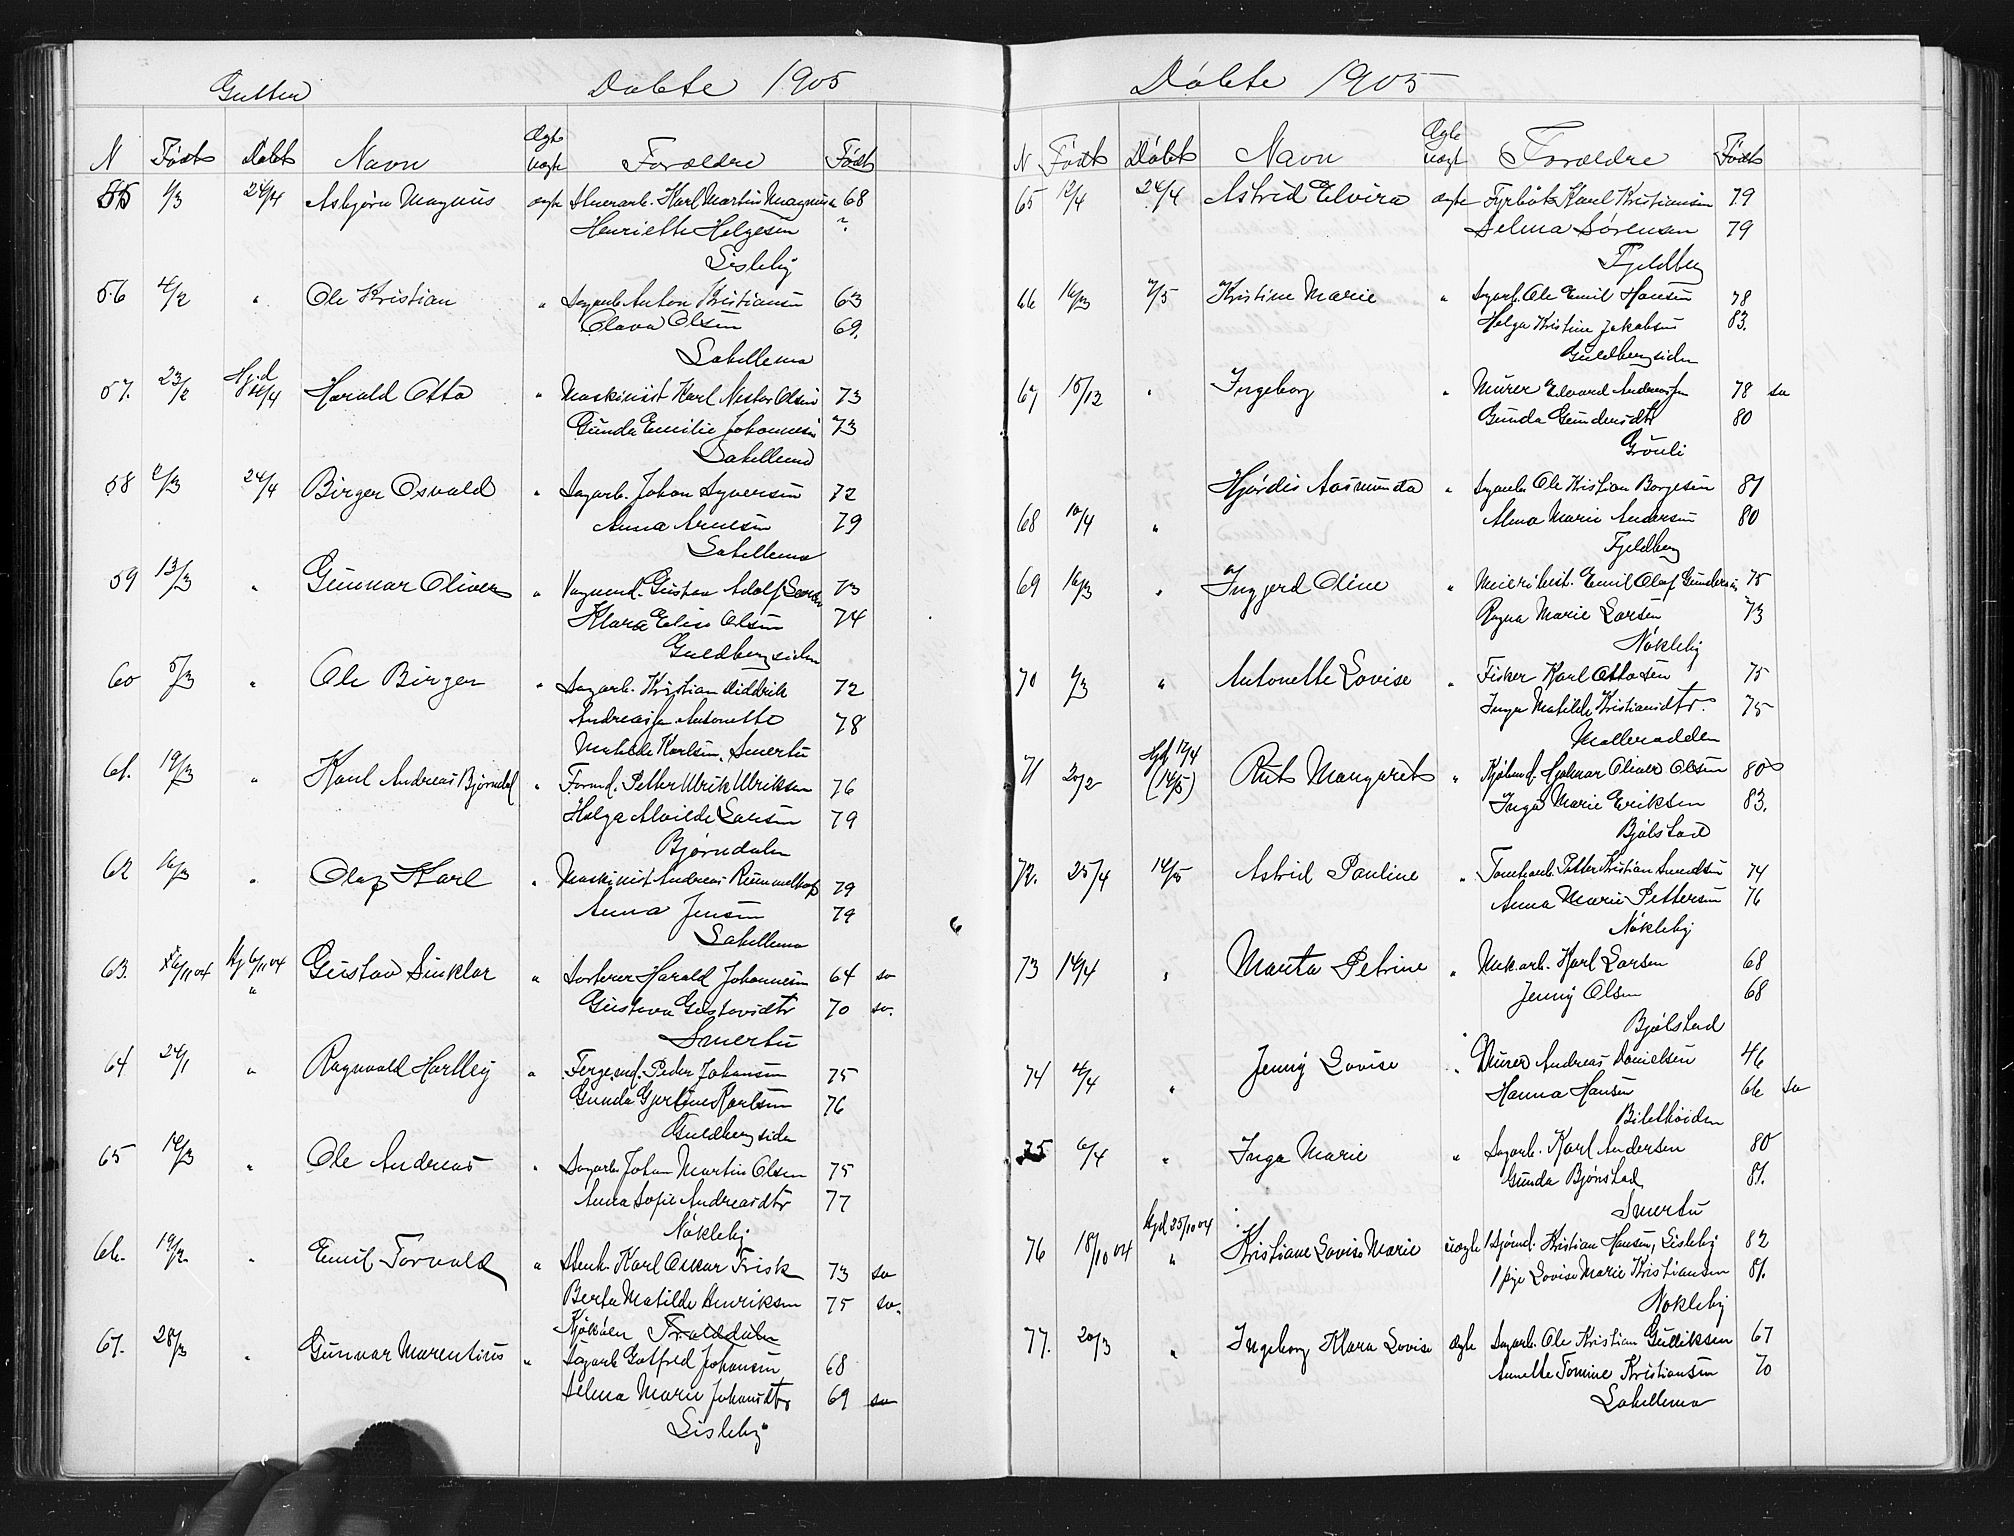 Gutter Døbte 1905
N Født Døbt Navn Ægte uægte Forældre Født
55 1/3 24/4 Asbjørn Magnus ægte Stenarb. Karl Martin Magnus 68
Henriette Helgesen ?
Lisleby
56 4/2 " Ole Kristian " Sagarb. Anton Kristiansen 63
Olava Olsen 69.
Labellema
57. 23/2 Hjd. 24/4 Harald Otto " Maskinist Karl Nestor Olsen 73
Gunda Emilie Johannesen 73
Labellema
58 2/3 24/4 Birger Osvald " Sagarb. Johan Syversen 72
Anna Arnesen 79
Labellema
59 13/3 " Gunnar Oliver " Vognmd. Gustav Adolf 73
Klara Elise Olsen 74
Guldbergsiden
60 5/3 " Ole Birger " Sagarb. Kristian Didrik 72
Andreassen Antonette 78
Matilde Karlsen, Smertu
61. 19/3 " Karl Andreas Bjørndal " Formd. Petter Ulrik Ulriksen 76
Helga Alvilde Larsen 79
Bjørndalen
62 16/3 " Olaf Karl " Maskinist Andreas Rummelhoff 79
Anna Jensen 79
Labellema
63. 6/11 04 Hj 6/11 04 Gustav Sinklar " Sorterer Harald Johannesen 64 sv
" Gustava Gustavsdtr 70 sv.
Smertu
64 24/1 " Ragnvald Harlley " Fergemd. Peder Johansen 75
Gunda Gjertine Karlsen 76
Guldbergsiden
65 14/3 " Ole Andreas " Sagarb. Johan Martin Olsen 75
Anna Sofie Andreasdtr 77
Nøkleby
66. 19/2 " Emil Torvald " Stenh. Karl Oskar Frisk 73 sv
Berta Matilde Henriksen 75 sv.
Kjøkøen Tralddalen
67. 28/3 " Gunnar Marentius " Sagarb Gotfred Johansen 68
Selma Marie Johansdtr 69 sv
Lisleby
Døbte 1905
N Født Døbt Navn Ægte uægt Forældre Født
65 12/4 24/4 Astrid Elvira ægte Fyrbøt Karl Kristiansen 79
Selma Sørensen 79
Fjeldberg
66 16/3 7/5 Kristine Marie " Sagarb. Ole Emil Hansen 78
Helga Kristine Jakobsen 83.
Guldbergsiden
67 15/12 " Ingeborg " Murer Edvard Andreassen 78 sv
Gunda Gundersdtr 80
Grönli
Hjørdis Aasmunda " Sagarb Ole Kristian Borgesen 81
68 10/4 " Alma Marie Andersen 80
Fjeldberg
69 16/3 " Ingjerd Oline " Meieribest. Emil Olaf Gundersen 75
Ragna Marie Larsen 73
Nøkleby
70 4/3 " Antonette Lovise " Fisker Karl Ottosen 75
Inga Matilde Kristiansdtr. 75
Mallerodden
71 20/2 Hjd 12/4 (14/5) Rut Margaret " Kjøbmd. Hjalmar Oliver Olsen 80
Inga Marie Eriksen 83.
Bjølstad
72. 25/4 14/5 Astrid Pauline " Tomtearb. Petter Kristian Amundsen 74
Anna Marie Pettersen 76
Nøkleby
73 14/4 " Marta Petrine " Mek.arb. Karl Larsen 68
Jenny Olsen 68
Bjølstad
74 4/4 " Jenny Lovise " Murer Andreas Danielsen 46
Hanna Hansen 66 sv
Biletkøiden
75 6/4 " Inga Marie " Sagarb. Karl Andersen 80
Gunda Bjørnstad 81.
Smertu
76 18/10 04 Hjd 25/10 04 " Kristiane Lovise Marie uægte Sjømd. Kristian Hansen, Lisleby 82
pige Lovise Marie Kristiansen 81.
Nøkleby
77. 20/3 " Ingeborg Klara Lovise ægte Sagarb. Ole Kristian Gulliksen 67
Anette Tomine Kristiansen 70
Labellema